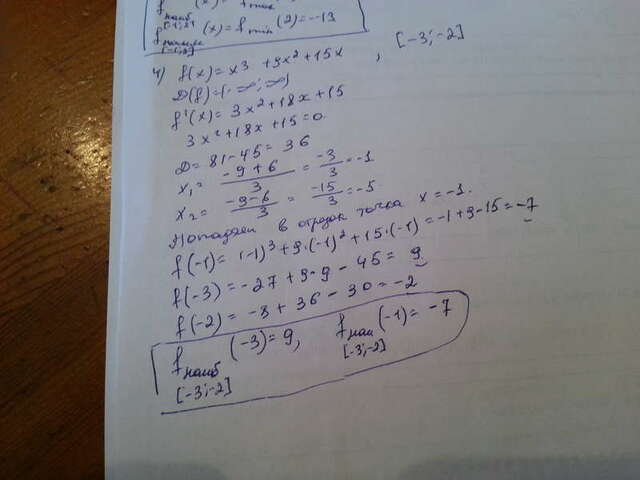 f наиб (x) = f max
[-1;2]
f наим (x) = f min (2) = -13
4) f(x) = x³ + 9x² + 15x , [-3;-2]
D(f) = (-∞;∞)
f'(x) = 3x² + 18x + 15
3x² + 18x + 15 = 0
D = 81 - 45 = 36
x₁ = (-9+6)/3 = -3/3 = -1
x₂ = (-9-6)/3 = -15/3 = -5
Попадает в отрезок точка x = -1.
f(-1) = (-1)³ + 9·(-1)² + 15·(-1) = -1 + 9 - 15 = -7
f(-3) = -27 + 9·9 - 45 = 9
f(-2) = -8 + 36 - 30 = -2
f наиб (-3) = 9, f наи (-1) = -7
[-3;-2] [-3;-2]